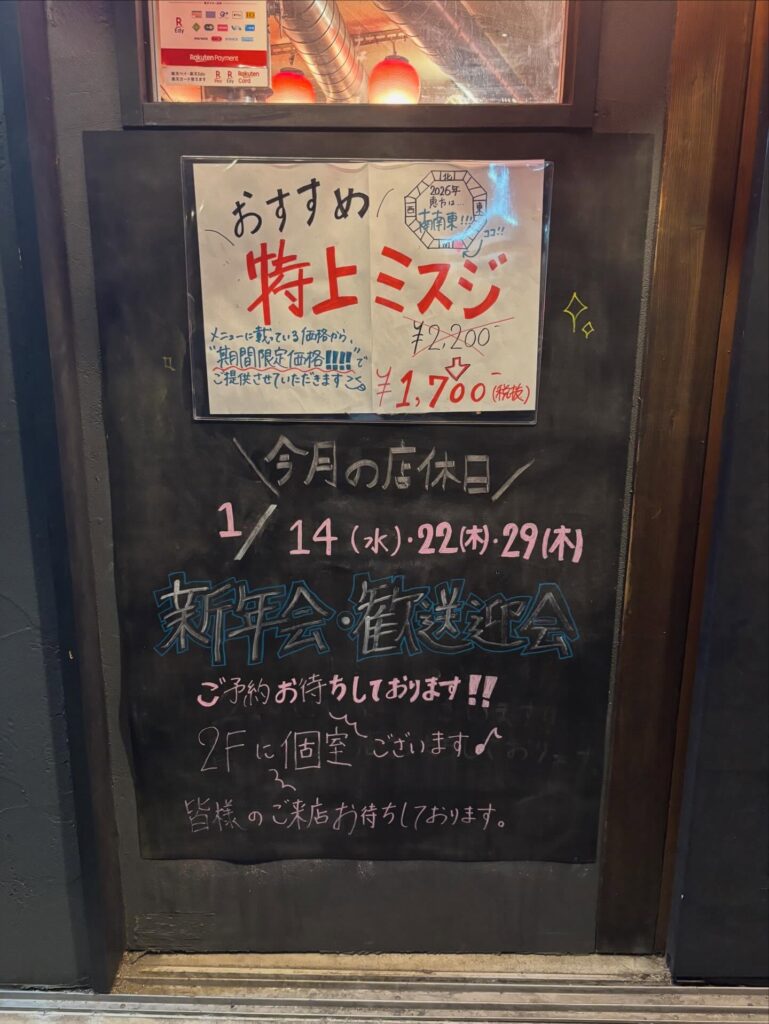 R Edy
Rakuten Payment
R Pay R Edy Rakuten Card
おすすめ
北
西
東
2026年
恵方は…
南南東!!!
ココ!!
特上ミスジ
メニューに載っている価格から、
"期間限定価格!!!!"で
ご提供させていただきます
¥2,200-
¥1,700-(税抜)
今月の店休日
1/14(水)・22(木)・29(木)
新年会・歓送迎会
ご予約お待ちしております!!
2Fに個室ございます♪
皆様のご来店お待ちしております。